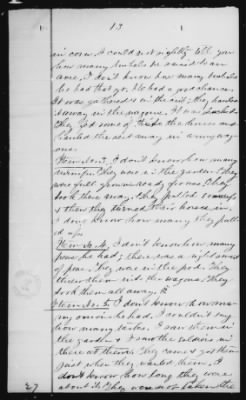 13
in corn. I could not rightly tell you
how many bushels he raised to an
acre, I don't know how many bushels
he had that go. He had a good chance.
It was gathered in the ; they hauled
it away in the wagons. It was
They fed some of it to the horses and
hauled the rest away in army wag-
ons.
Item No. 3. I don't know how many
turnips. They were in the garden. They
were full grown ready for use. They
took them away. They pulled
& then they turned their horses in.
I dont know how many they pulled
up.
Item No. 4. I don't know how many
peas he had; there was a right smart
of peas. They were in the pod. They
threw them in the wagons. They
took them all away.
Item No. 5. I don't know how many
onions he had. I couldn't say
how many bushels. I saw them in
the garden & I saw the soldiers in
there at them. They came & got them
just when they wanted them. I
don't know how long they were
about it. They were not taken the
27